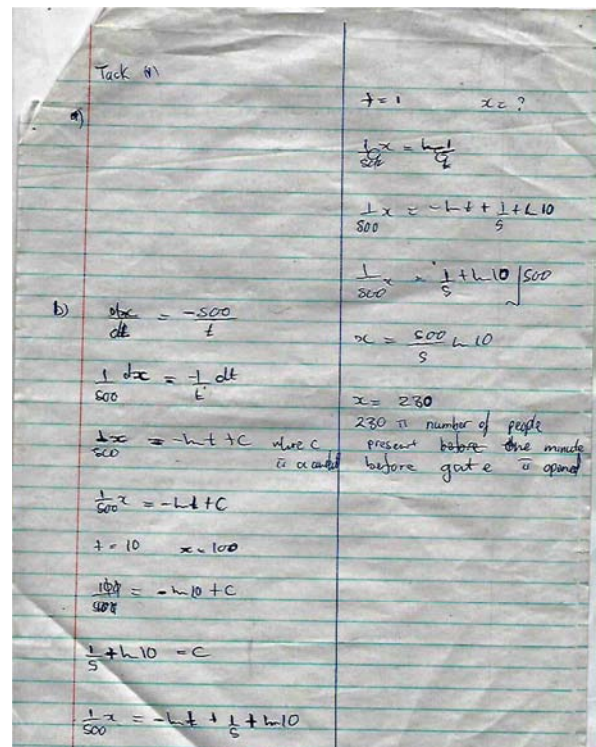 Tack
a)
b) dx/dt = -500/t
1/500 dx = -1/t dt
1/500 x = -ln t + C where C is a
1/500 x = -ln t + C
t = 10 x = 100
100/500 = -ln 10 + C
1/5 + ln 10 = C
1/500 x = -ln t + 1/5 + ln 10
t = 1 x = ?
1/500 x = -ln t + 1/5 + ln 10
1/500 x = 1/5 + ln 10 ] 500
x = 500/5 ln 10
x = 230
230 is number of people
present before one minute
before gate is opened